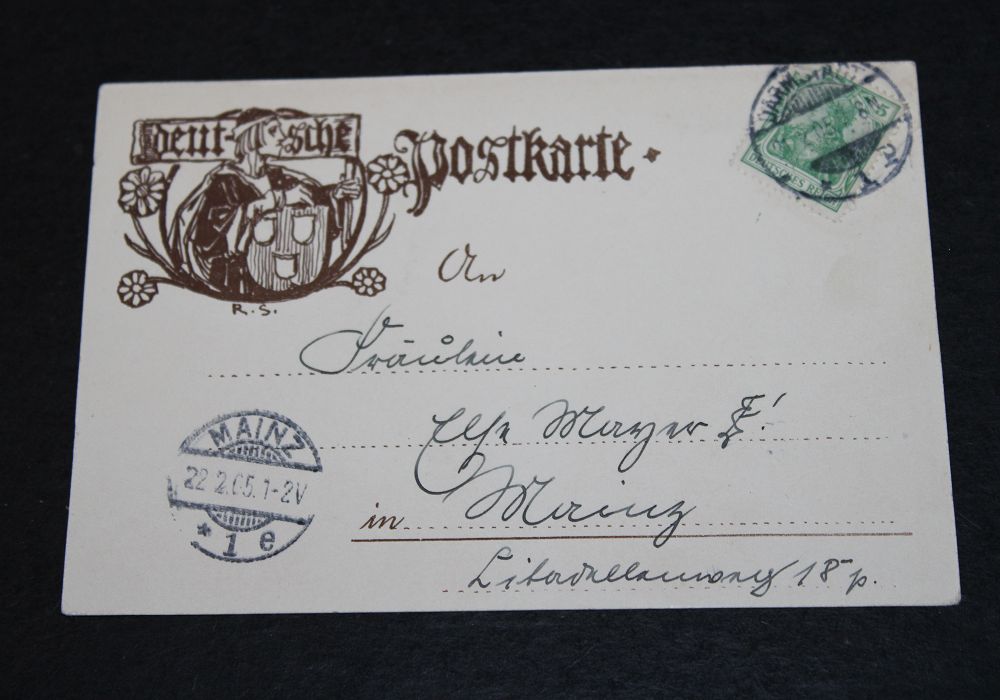 deut-sche
Postkarte
R. S.
DARMSTADT
DEUTSCHES REICH
1
An
Fräulein
Else Mayer
in Mainz
18 p.
MAINZ
22.2.05.1-2V
* 1 e